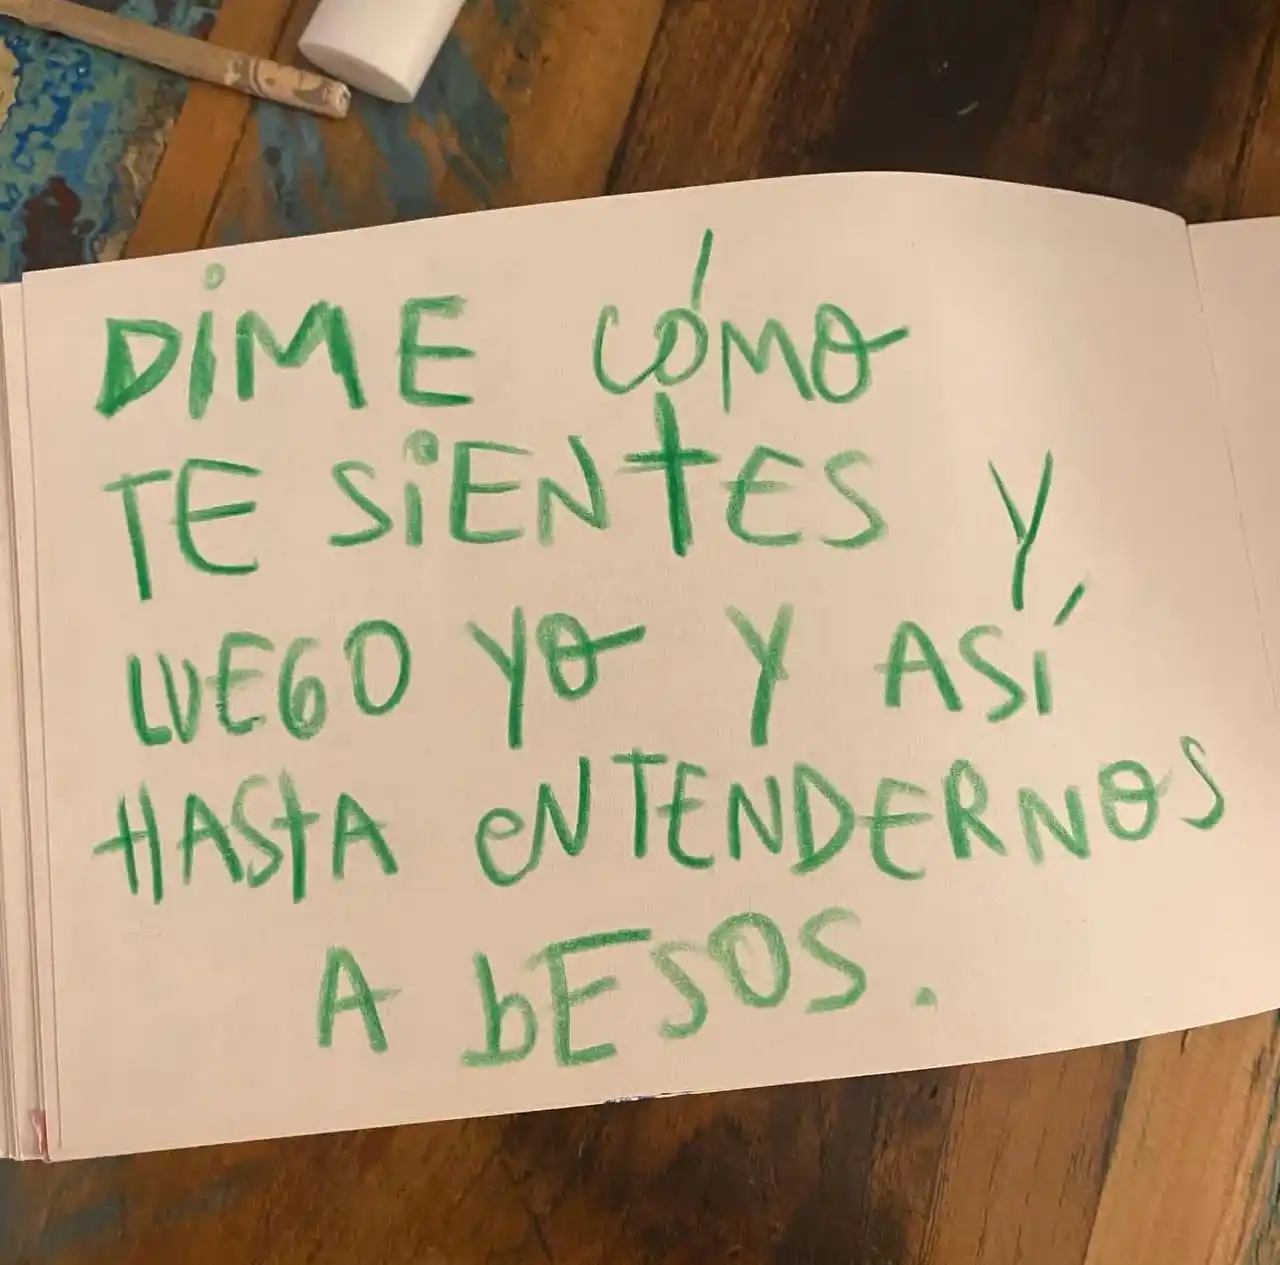 DiME CÓMO
TE SiENtES Y
LUEGO YO Y ASÍ
HAStA eNTENDERNOS
A bESOS.